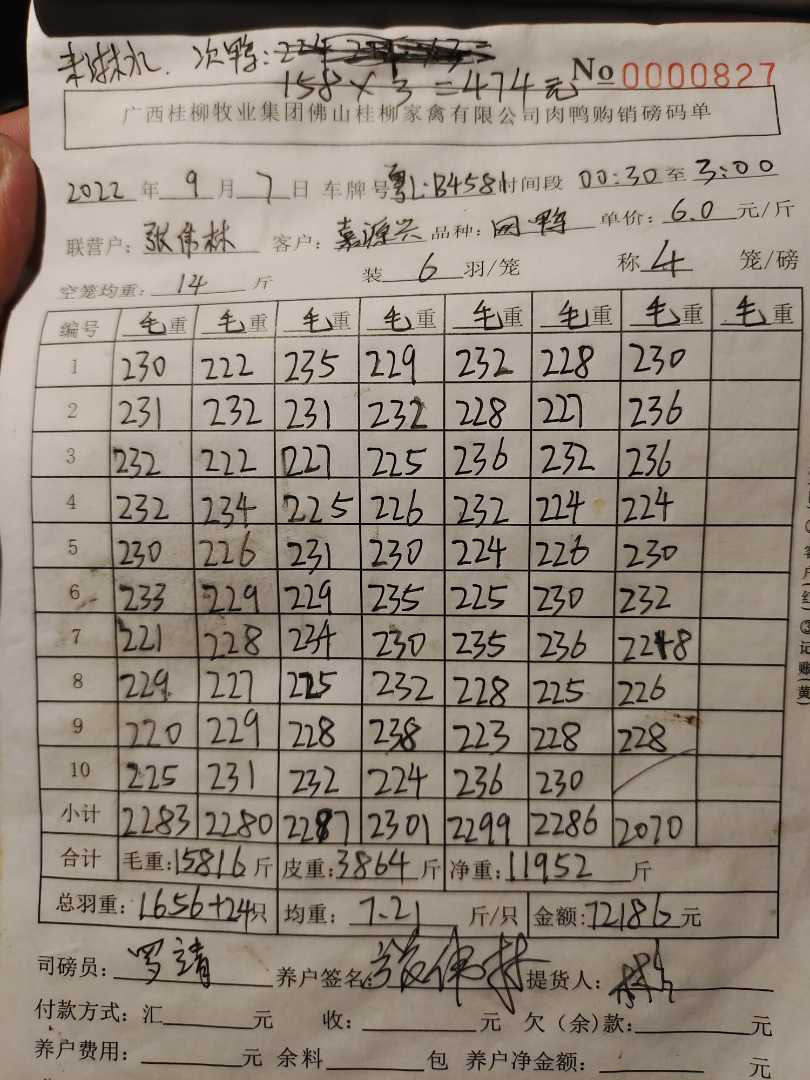 未淋水. 次鸭:
158×3=474元 No 0000827
广西桂柳牧业集团佛山桂柳家禽有限公司肉鸭购销磅码单
2022年9月7日 车牌号 粤L:B4581 时间段 00:30至3:00
联营户: 张伟林 客户: 嘉源兴 品种: 鸭 单价: 6.0 元/斤
空笼均重: 14 斤 装 6 羽/笼 称 4 笼/磅
编号 毛重 毛重 毛重 毛重 毛重 毛重 毛重 毛重
1 230 222 235 229 232 228 230
2 231 232 231 232 228 227 236
3 232 222 227 225 236 232 236
4 232 234 225 226 232 224 224
5 230 226 231 230 224 226 230
6 233 229 229 235 225 230 232
7 221 228 234 230 235 236 228
8 229 227 225 232 228 225 226
9 220 229 228 238 223 228 228
10 225 231 232 224 236 230
小计 2283 2280 2287 2301 2299 2286 2070
合计 毛重: 15816 斤 皮重: 3864 斤 净重: 11952 斤
总羽重: 1656+24只 均重: 7.21 斤/只 金额: 72186 元
司磅员: 罗靖 养户签名: 张伟林 提货人:
付款方式: 汇 元 收: 元 欠(余)款: 元
养户费用: 元 余料 包 养户净金额: 元
客户(红)③记账(黄)